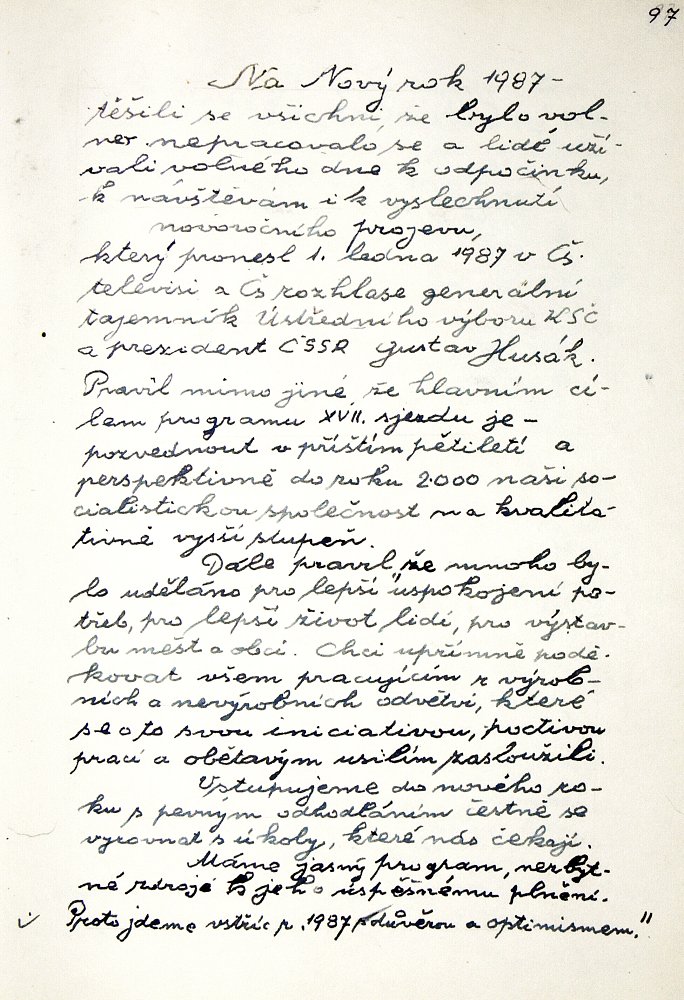 97
Na Nový rok 1987 –
těšili se všichni, že bylo vol-
no. nepracovalo se a lidé uží-
vali volného dne k odpočinku,
k návštěvám i k vyslechnutí
novoročního projevu,
který pronesl 1. ledna 1987 v Čs.
televisi a Čs rozhlase generální
tajemník Ústředního výboru KSČ
a prezident ČSSR Gustav Husák.
Pravil mimo jiné, že hlavním cí-
lem programu XVII. sjezdu je –
pozvednout v příštím pětiletí a
perspektivně do roku 2.000 naši so-
cialistickou společnost na kvalita-
tivně vyšší stupeň.
Dále pravil, že mnoho by-
lo uděláno pro lepší "uspokojení po-
třeb, pro lepší život lidí, pro výstav-
bu měst a obcí. Chci upřímně podě-
kovat všem pracujícím z výrob-
ních a nevýrobních odvětví, které
se o to svou iniciativou, poctivou
prací a obětavým usilím zasloužili.
Vstupujeme do nového ro-
ku s pevným odhodláním čestně se
vyrovnat s úkoly, které nás čekají.
Máme jasný program, nezbyt-
né zdroje k jeho úspěšnému plnění.
Proto jdeme vstříc r. 1987 s důvěrou a optimismem."